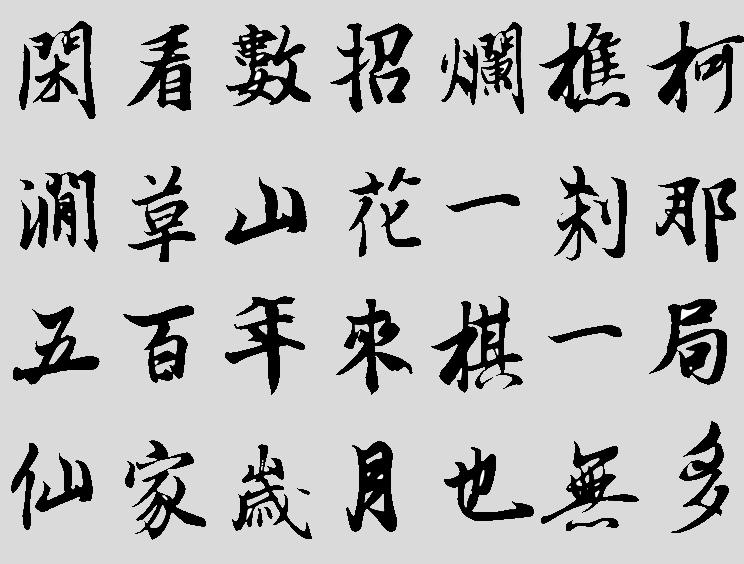 閑看數招爛樵柯
澗草山花一刹那
五百年來棋一局
仙家歲月也無多